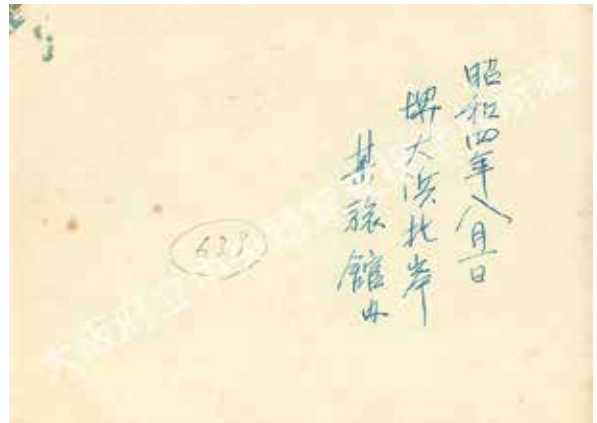 昭和四年八月一日
堺大浜北岸
某旅館内
638
大阪府立中